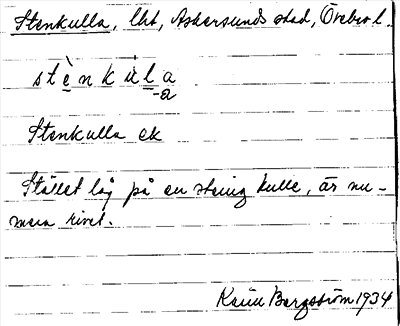 Stenkulla, lht, Askersunds stad, Örebro l.
stènkùla
-a
Stenkulla ek
Stället låg på en stenig kulle, är nu-
mera rivet.
Bergström 1934